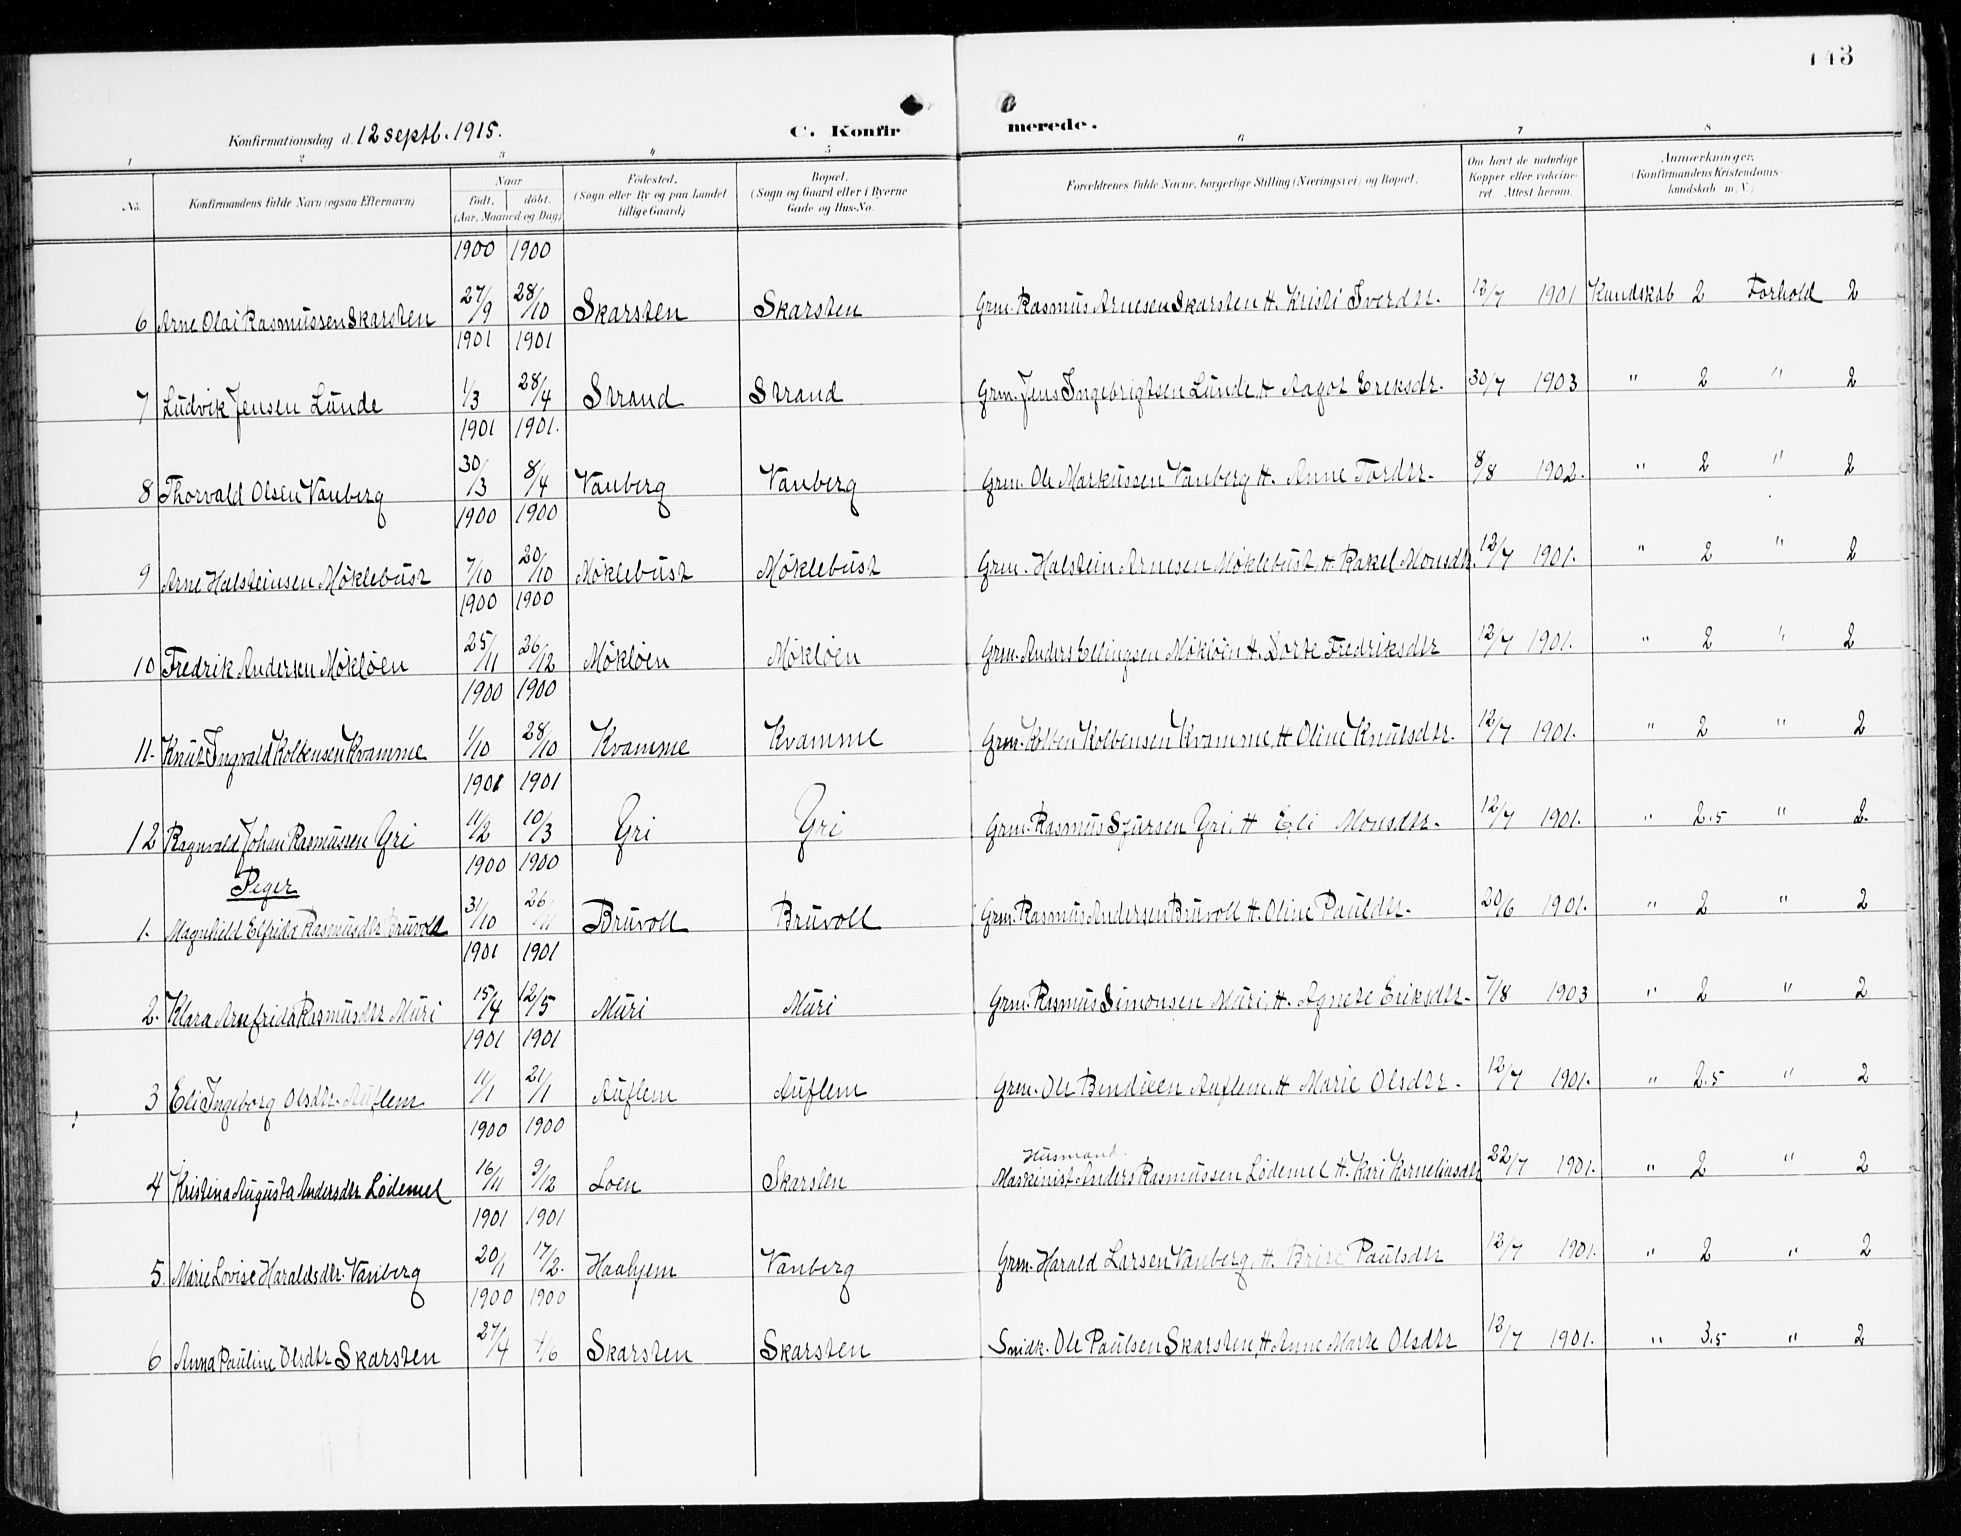 143
Konfirmationsdag d. 12 septb. 1915.
C. Konfirmerede.
1 2 3 4 5 6 7 8
No. Konfirmandens fulde Navn (ogsaa Efternavn) Naar født. døbt. (Aar, Maaned og Dag) Fødested. (Sogn eller By og paa Landet tillige Gaard) Bopæl. (Sogn og Gaard eller i Byerne Gade og Hus-No. Forældrenes fulde Navne, borgerlige Stilling (Næringsvei) og Bopæl. Om havt de naturlige Kopper eller vakcineret. Attest herom. Anmærkninger. (Konfirmandens Kristendomskundskab m. V.)
1900 1900
6 Arne Olai Rasmussen Skarsten 27/9 28/10 Skarsten Skarsten Grm. Rasmus Arnesen Skarsten H. Kristi Iverdtr. 12/7 1901 Kundskab 2 Forhold 2
1901 1901
7 Ludvik Jensen Lunde 1/3 28/4 Strand Strand Grm. Jens Ingebrigtsen Lunde H Aagot Eriksdtr. 30/7 1903 " 2 " 2
1901 1901.
8 Thorvald Olsen Vanberg 30/3 8/4 Vanberg Vanberg Grm. Ole Markussen Vanberg H. Anne Tordtr. 8/8 1902. " 2 " 2
1900 1900
9 Arne Halsteinsen Møklebust 7/10 20/10 Møklebust Møklebust Grm. Halstein Arnesen Møklebust, H Rakel Monsdtr. 12/7 1901. " 2 " 2
1900 1900
10 Fredrik Andersen Mökløen 25/11 26/12 Mökløen Mökløen Grm. Anders Ellingsen Mökløen H. Dorte Fredriksdtr 12/7 1901. " 2 " 2
1900 1900
11. Knut Ingvald Kolbensen Kvamme 1/10 28/10 Kvamme Kvamme Grm. Kolben Kolbensen Kvamme, H Oline Knutsdtr. 12/7 1901. " 2 " 2
1901 1901
12 Ragnvald Johan Rasmussen Gri 11/2 10/3 Gri Gri Grm. Rasmus Sjursen Gri. H Eli Monsdtr. 12/7 1901. " 2.5 " 2.
1900 1900
Piger
1. Magnhild Elfrida Rasmusdtr Bruvoll 31/10 26/11 Bruvoll Bruvoll Grm. Rasmus Andersen Bruvoll H. Oline Pauldtr. 20/6 1901. " 2 " 2
1901 1901
2. Klara Arnfrida Rasmusdtr Muri 15/4 12/5 Muri Muri Grm. Rasmus Simonsen Muri, H. Agnete Eriksdtr. 7/8 1903 " 2 " 2
1901 1901
3 Eli Ingeborg Olsdtr. Auflem 11/1 21/1 Auflem Auflem Grm. Ole Bendixen Auflem. H Marie Olsdtr. 12/7 1901. " 2.5 " 2
1900 1900
Husmand.
4 Kristina Augusta Andersdtr Lødemel 16/11 9/12 Loen Skarsten Maskinist Anders Rasmussen Lødemel H. Kari Korneliusdtr 22/7 1901. " 2 " 2
1901 1901
5. Marie Lovise Haraldsdtr. Vanberg 20/1 17/2. Haahjem Vanberg Grm. Harald Larsen Vanberg, H. Brite Paulsdtr 12/7 1901. " 2 " 2
1900 1900
6 Anna Pauline Olsdtr Skarsten 27/4 4/6 Skarsten Skarsten Smidk. Ole Paulsen Skarsten, H Anne Marte Olsdtr 12/7 1901. " 3.5 " 2